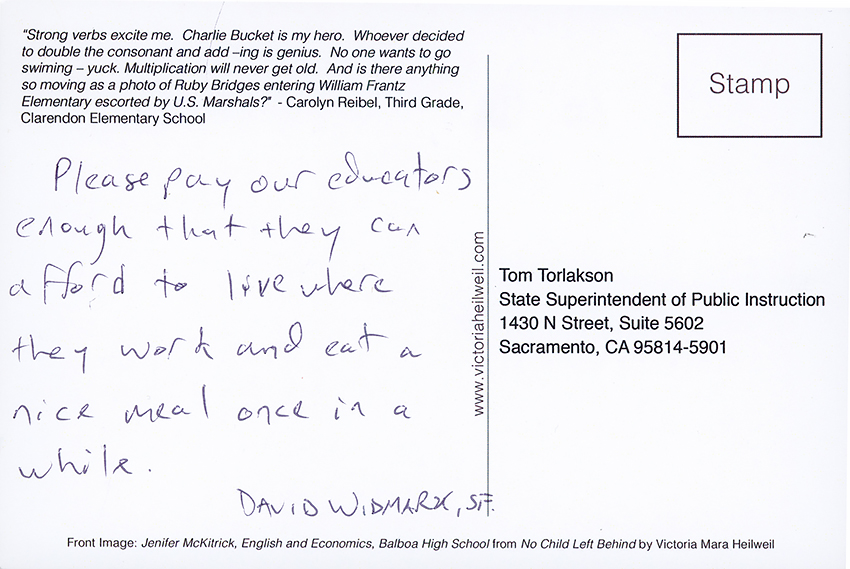 "Strong verbs excite me.  Charlie Bucket is my hero.  Whoever decided
to double the consonant and add –ing is genius.  No one wants to go
swiming – yuck. Multiplication will never get old.  And is there anything
so moving as a photo of Ruby Bridges entering William Frantz
Elementary escorted by U.S. Marshals?"  - Carolyn Reibel, Third Grade,
Clarendon Elementary School
Please pay our educators
enough that they can
afford to live where
they work and eat a
nice meal once in a
while.
DAVID WIDMARK, S.F.
www.victoriaheilweil.com
Stamp
Tom Torlakson
State Superintendent of Public Instruction
1430 N Street, Suite 5602
Sacramento, CA 95814-5901
Front Image: Jenifer McKitrick, English and Economics, Balboa High School from No Child Left Behind by Victoria Mara Heilweil